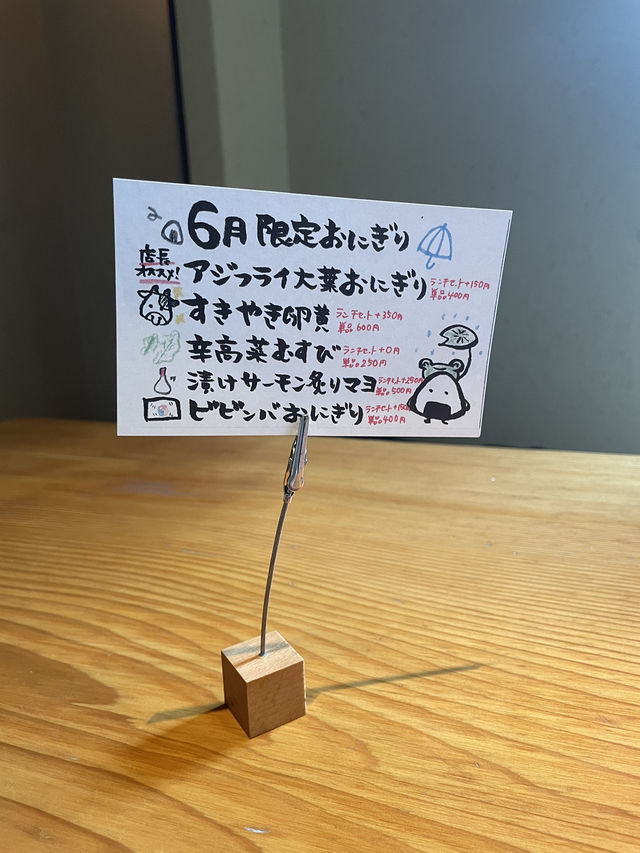 6月限定おにぎり
店長
オススメ!
アジフライ大葉おにぎり
ランチセット+150円
単品400円
すきやき卵黄
ランチセット+350円
単品600円
辛高菜むすび
ランチセット+0円
単品250円
漬けサーモン炙りマヨ
ランチセット+250円
単品500円
ビビンバおにぎり
ランチセット+150円
単品400円